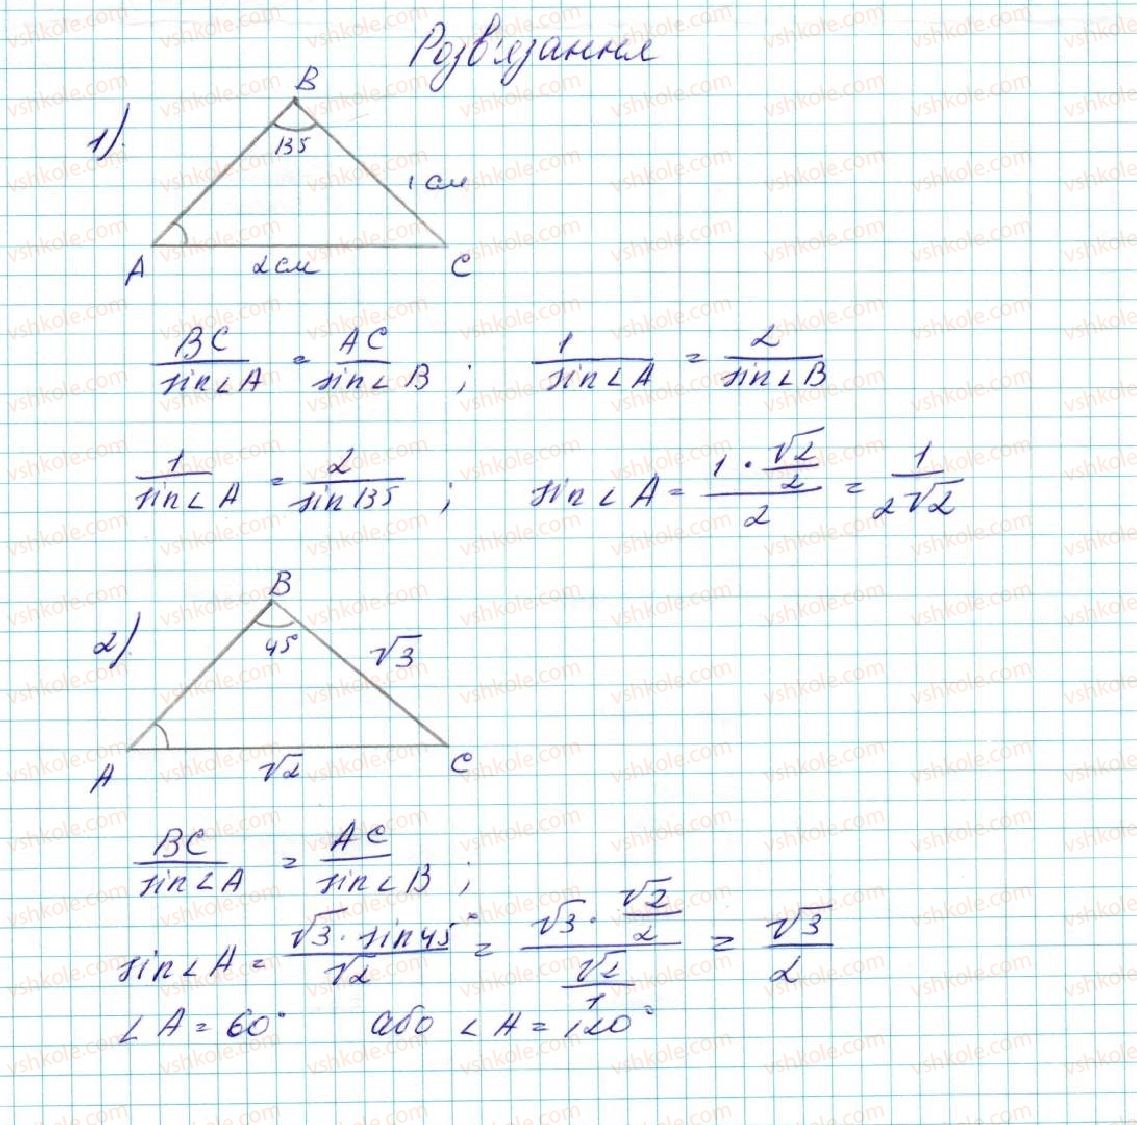 Розв'язання
1)
B
135
1 см
A
2 см
C
BC/sin∠A = AC/sin∠B ; 1/sin∠A = 2/sin∠B
1/sin∠A = 2/sin135 ; sin∠A = (1·√2/2)/2 = 1/(2√2)
2)
B
45
√3
A
√2
C
BC/sin∠A = AC/sin∠B ;
sin∠A = (√3·sin45°)/√2 = (√3·√2/2)/(√2/1) = √3/2
∠A = 60° або ∠A = 120°
vshkole.com